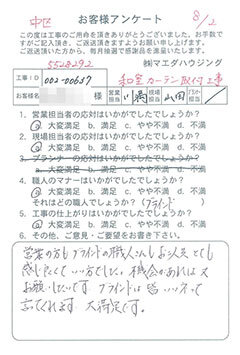 中区
お客様アンケート
8/2
この度は工事のご用命を頂きありがとうございました。お手数で
すがご記入頂き、ご返送頂きますようお願い申し上げます。
ご返送頂いた方から、毎月抽選で感謝品を進呈いたします。
5528292
㈱マエダハウジング
工事ID 003-00657
和室カーテン取付工事
お客様名 様 営業担当 工事担当 山田 プラ担当
1. 営業担当者の応対はいかがでしたでしょうか?
a 大変満足 b. 満足 c. やや不満 d. 不満
2. 現場担当者の応対はいかがでしたでしょうか?
a 大変満足 b. 満足 c. やや不満 d. 不満
3. プランナーの応対はいかがでしたでしょうか?
a. 大変満足 b. 満足 c. やや不満 d. 不満
4. 職人のマナーはいかがでしたでしょうか?
a 大変満足 b. 満足 c. やや不満 d. 不満
それはどの職人でしょうか?(ブラインド)
5. 工事の仕上がりはいかがでしたでしょうか?
a 大変満足 b. 満足 c. やや不満 d. 不満
6. その他、ご意見・ご要望をお書き下さい。
営業の方もブラインドの職人さんもお二人とても
感じよくていい方でした。機会があれば又
お願いしたいです ブラインドは皆いいネって
言ってくれます 大満足です。